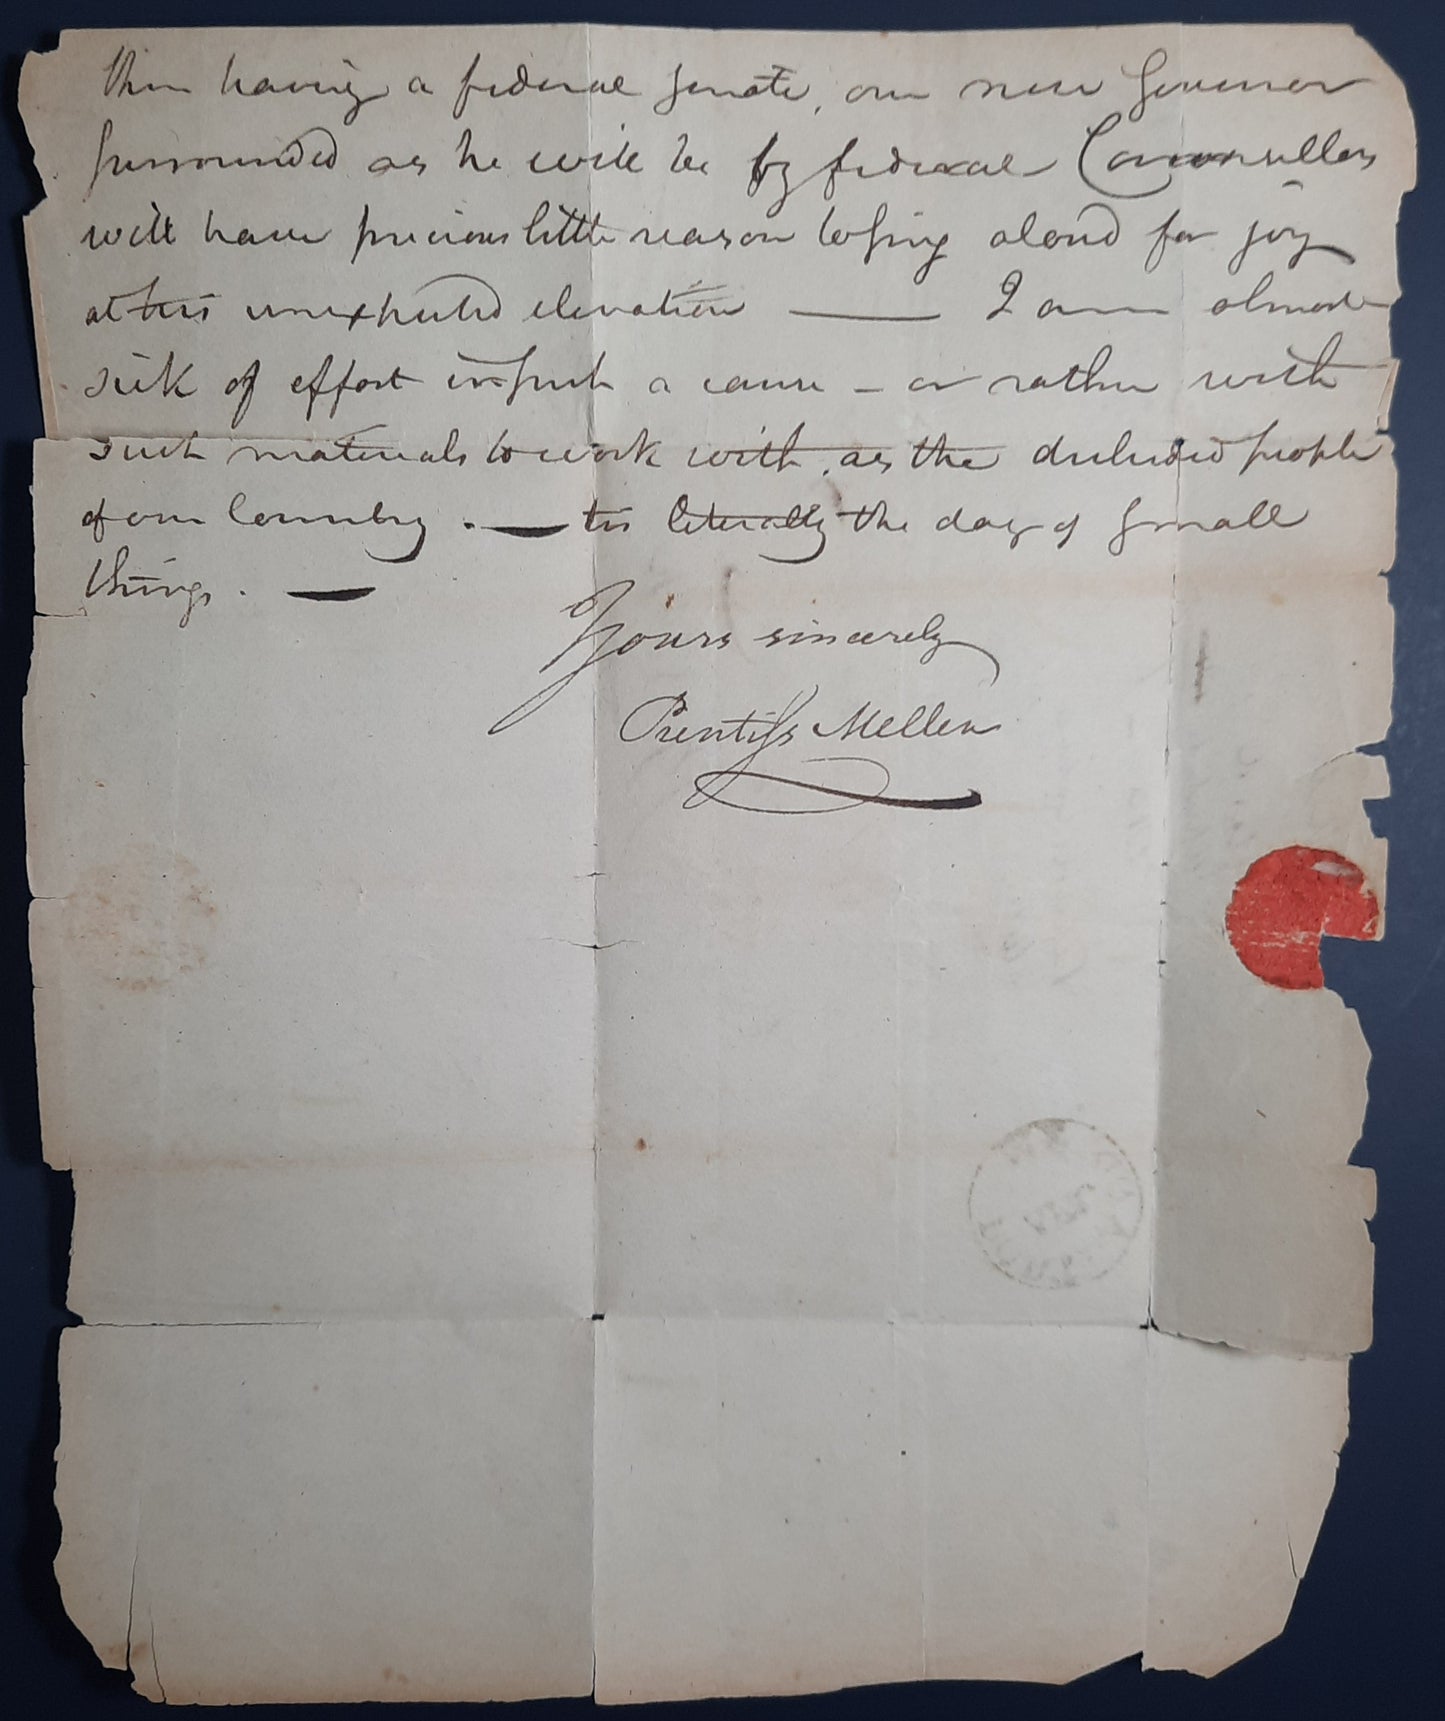 then having a federal senate, our new Governor
surrounded as he will be by federal Counsellors
will have precious little reason to sing aloud for joy
at his unexpected elevation —— I am almost
sick of effort in such a cause – or rather with
such materials to work with, as the deluded people
of our Country. — tis literally the day of small
things. —
Yours sincerely
Prentiss Mellen